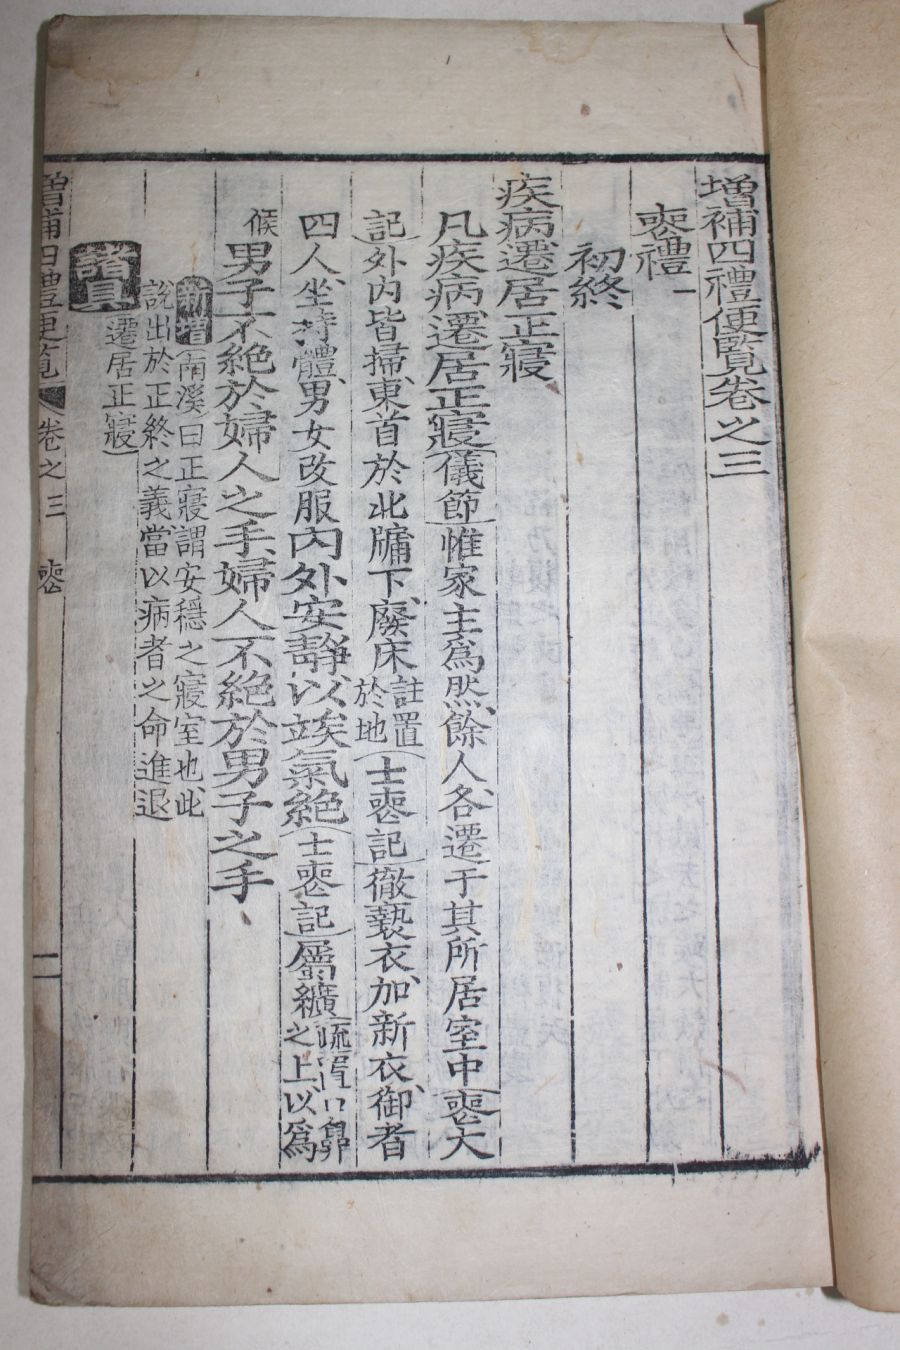 增補四禮便覽卷之三
喪禮一
初終
疾病遷居正寢
凡疾病遷居正寢(儀節)惟家主爲然餘人各遷于其所居室中(喪大
記)外內皆掃東首於北牖下廢床註置於地(士喪記)徹褻衣加新衣御者
四人坐持體男女改服內外安靜以竢氣絶(士喪記)屬纊(疏置口鼻之上以爲
候男子不絶於婦人之手婦人不絶於男子之手
新增(南溪曰正寢謂安穩之寢室也此
說出於正終之義當以病者之命進退
諸具遷居正寢)
增補四禮便覽 卷之三 喪 一